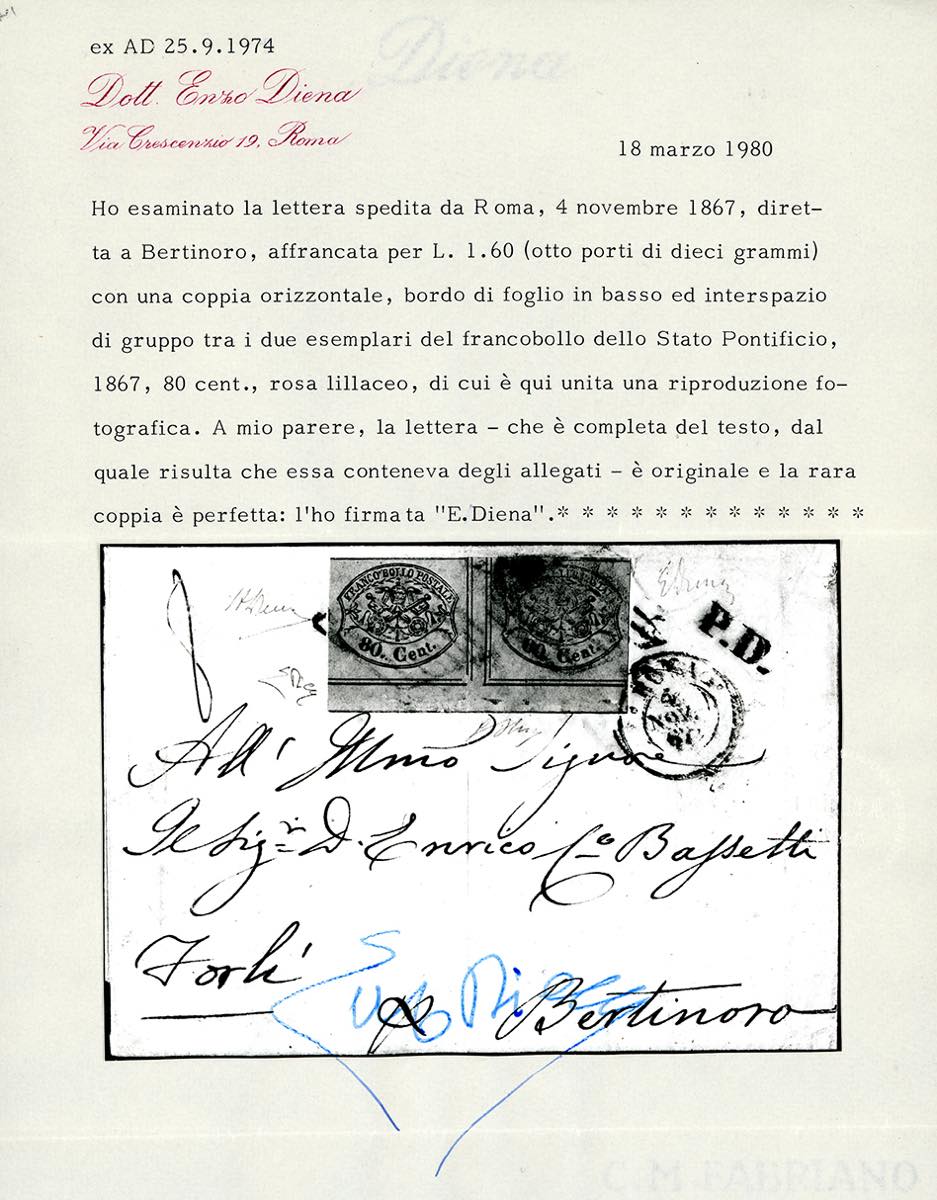 ex AD 25.9.1974
Diena
Dott. Enzo Diena
Via Crescenzio 19, Roma
18 marzo 1980
Ho esaminato la lettera spedita da Roma, 4 novembre 1867, diret-
ta a Bertinoro, affrancata per L. 1.60 (otto porti di dieci grammi)
con una coppia orizzontale, bordo di foglio in basso ed interspazio
di gruppo tra i due esemplari del francobollo dello Stato Pontificio,
1867, 80 cent., rosa lillaceo, di cui è qui unita una riproduzione fo-
tografica. A mio parere, la lettera - che è completa del testo, dal
quale risulta che essa conteneva degli allegati - è originale e la rara
coppia è perfetta: l'ho firmata "E.Diena".* * * * * * * * * * * * *
FRANCO BOLLO POSTALE
80. Cent.
80. Cent.
8
P.D.
ROMA
4
NOV.
67
All' Illmo Signore
Il Sigr. D. Enrico Co Bassetti
Forlì
Bertinoro
C.M FABRIANO